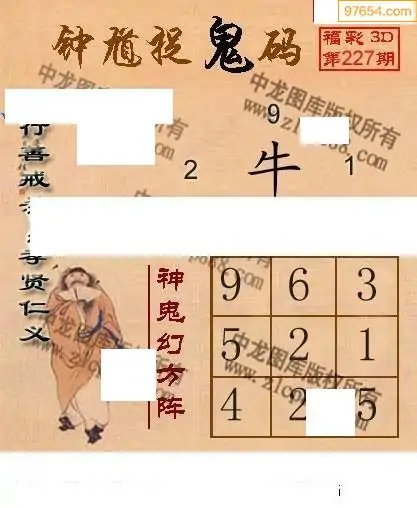 97654.com
钟馗捉鬼码
福彩3D
第227期
9
2 牛 1
行善戒
孝贤仁义
神鬼幻方阵
9 6 3
5 2 1
4 2 5
中龙图库版权所有
中龙图库版权所有
中龙图库版权所有
i